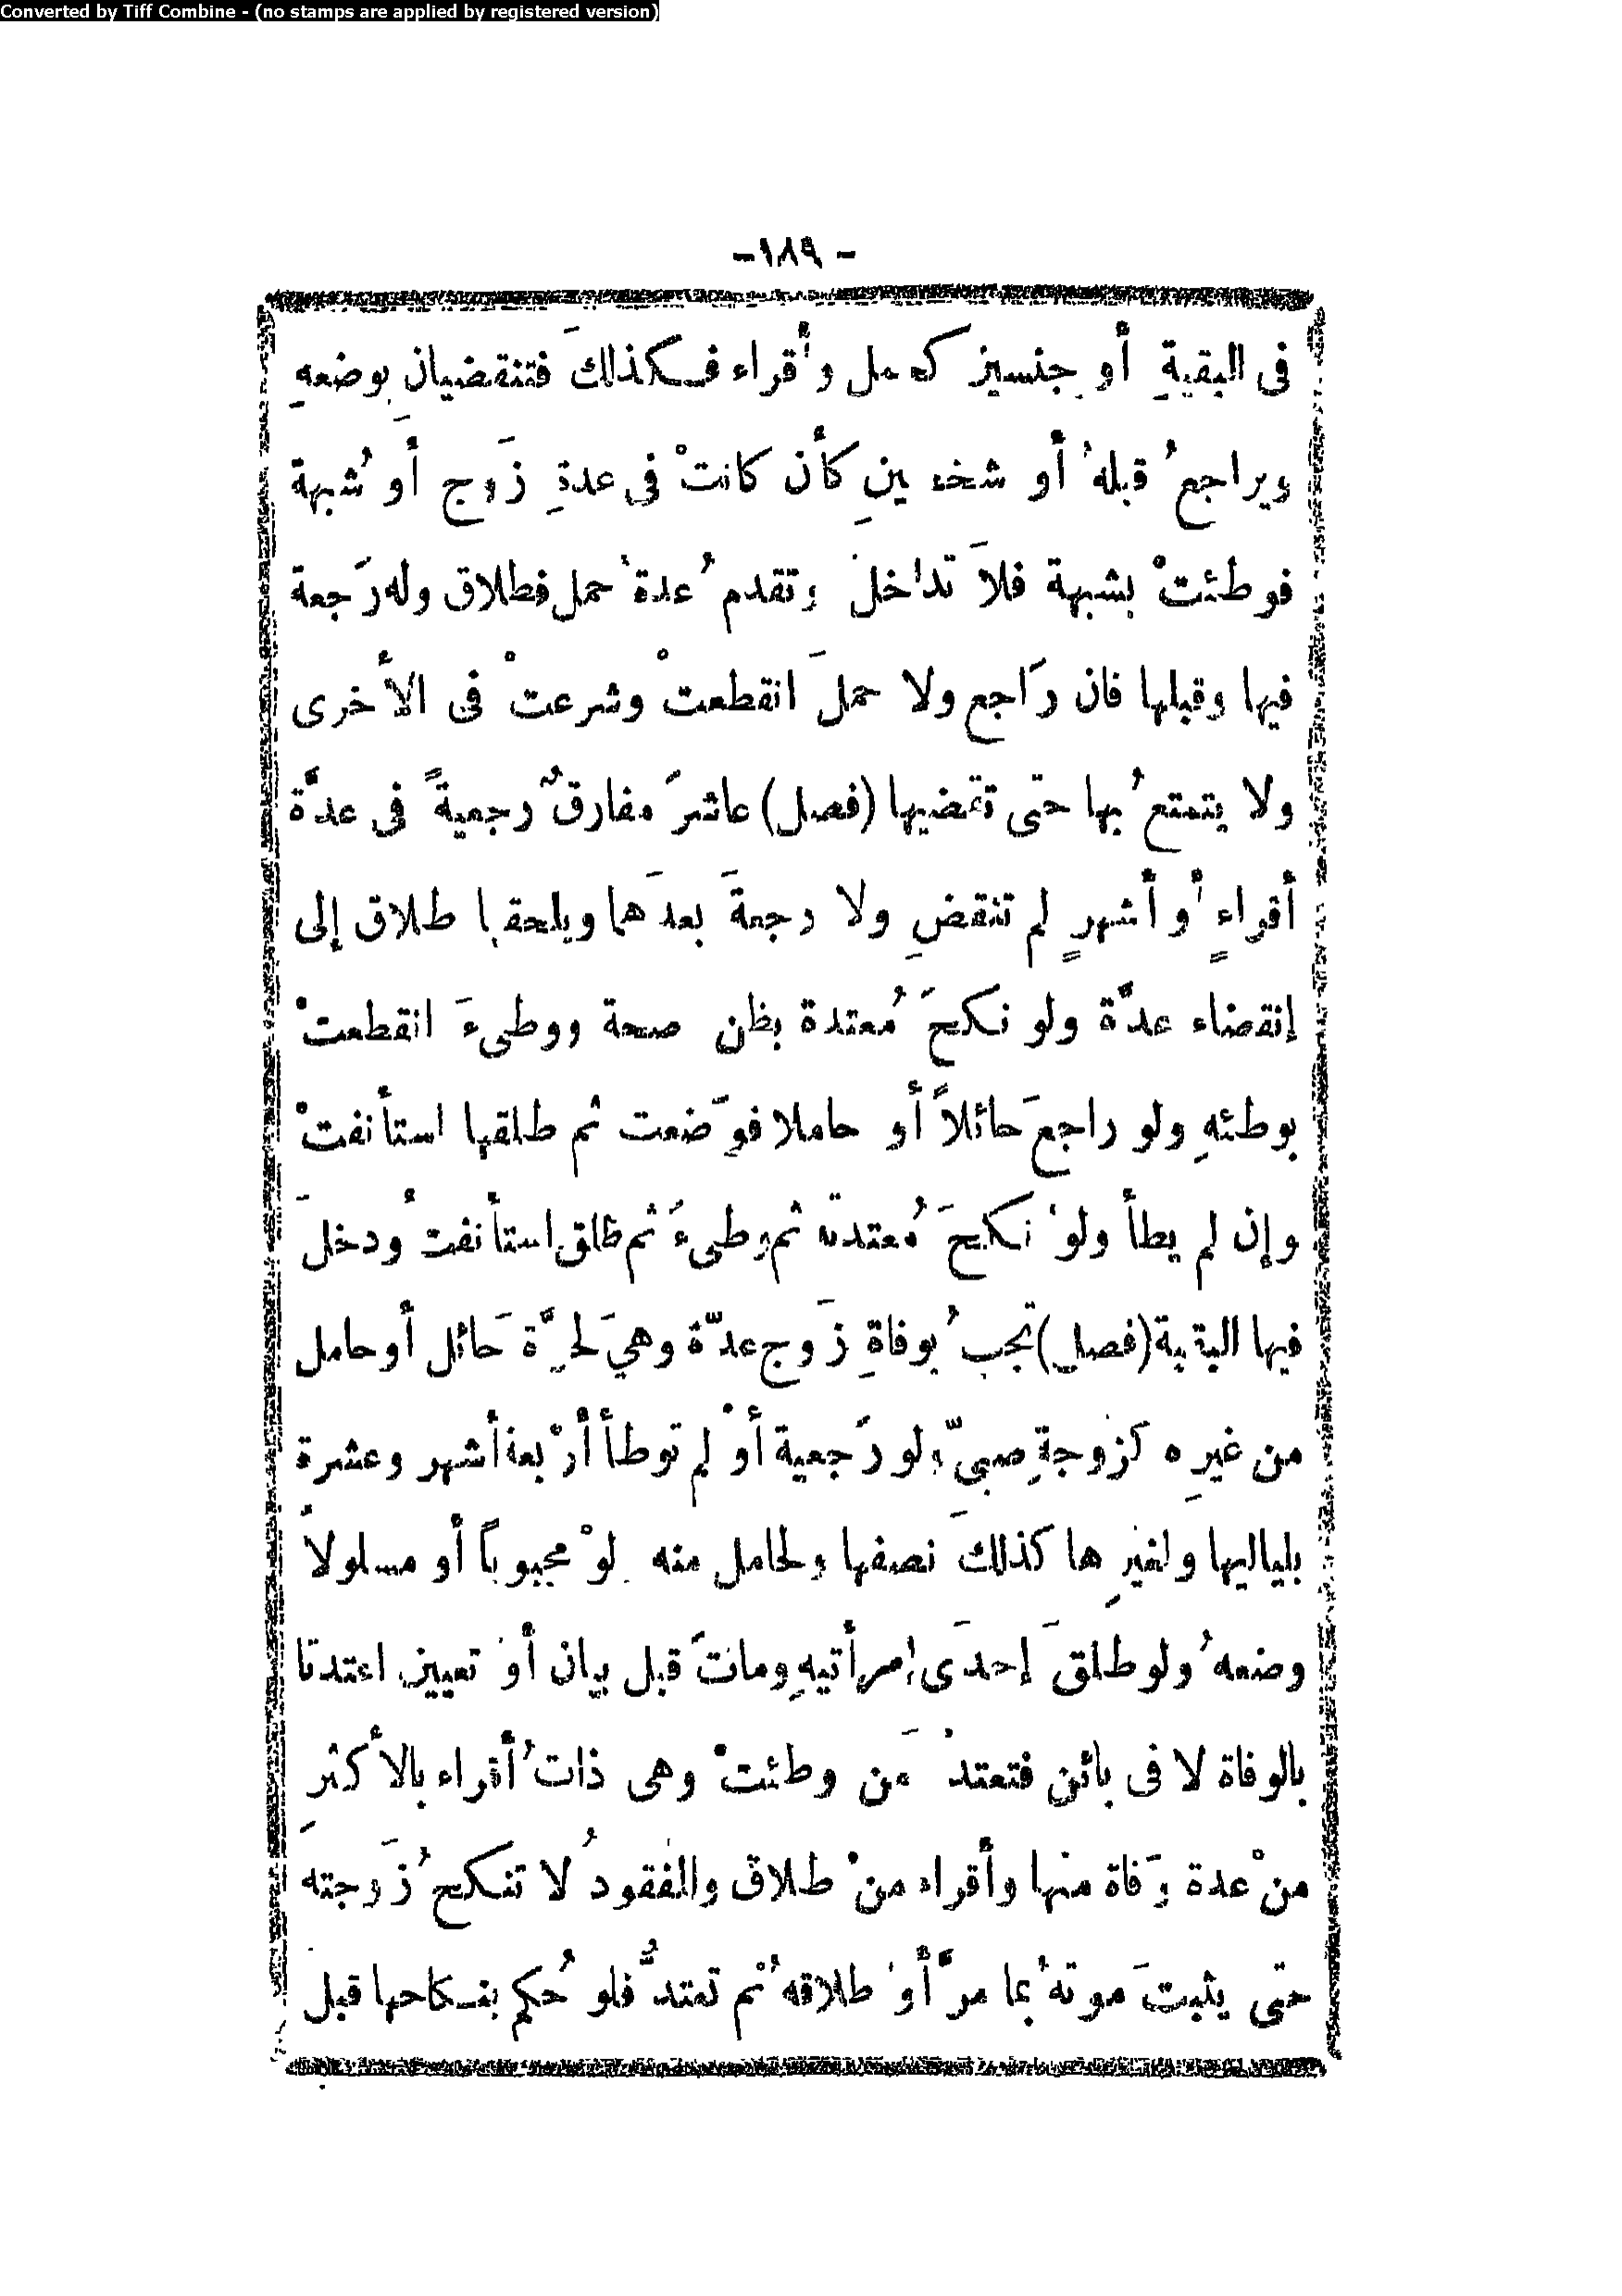 Converted by Tiff Combine - (no stamps are applied by registered version)
- ١٨٩ -
فى البقيةِ أو جنسين كحمل وأقراء فكذلكَ فتنقضيانِ بوضعهِ
ويراجعُ قبلهُ أو شخصينِ كأن كانتْ فى عدةِ زَوج أو شُبهة
فوطئتْ بشبهة فلاَ تداخلَ وتقدمُ عدةُ حمل فطلاق وله رَجعة
فيها وقبلها فان رَاجع ولا حملَ انقطعتْ وشرعتْ فى الأخرى
ولا يتمتعُ بها حتى تقضيها (فصل) عاشرَ مفارقٌ رجعيةً فى عدَّة
أقراءٍ أو أشهرٍ لم تنقضِ ولا رجعةَ بعدَهما ويلحقها طلاق إلى
إنقضاء عدَّة ولو نكحَ مُعتدة بظن صحة ووطىءَ انقطعتْ
بوطئهِ ولو راجعَ حَائلاً أو حاملا فوَضعت ثم طلقها استأنفتْ
وإن لم يطأ ولوْ نكحَ مُعتدته ثم وطىءَ ثم طلق استأنفتْ ودخلَ
فيها البقية (فصل) تجبُ بوفاةِ زَوج عدّة وهىَ لحرَّة حَائل أو حامل
من غيرِه كزوجةِ صبىّ ولو رَجعية أوْ لم توطأ أرْبعة أشهر وعشرة
بلياليها ولغيرِها كذلكَ نصفها ولحامل منه ولوْ مجبوباً أو مسلولاً
وضعهُ ولو طلقَ إحدَى امرأتيهِ وماتَ قبل بيان أوْ تعيين اعتدتا
بالوفاة لا فى بائن فتعتدُ مَن وطئتْ وهى ذاتُ أقراء بالأكثرِ
منْ عدة وَفاة منها وأقراء منْ طلاق والمفقودُ لا تنكحُ زَوجته
حتى يثبتَ موتهُ بما مرَّ أوْ طلاقهُ ثم تعتدُّ فلو حُكم بنكاحها قبل